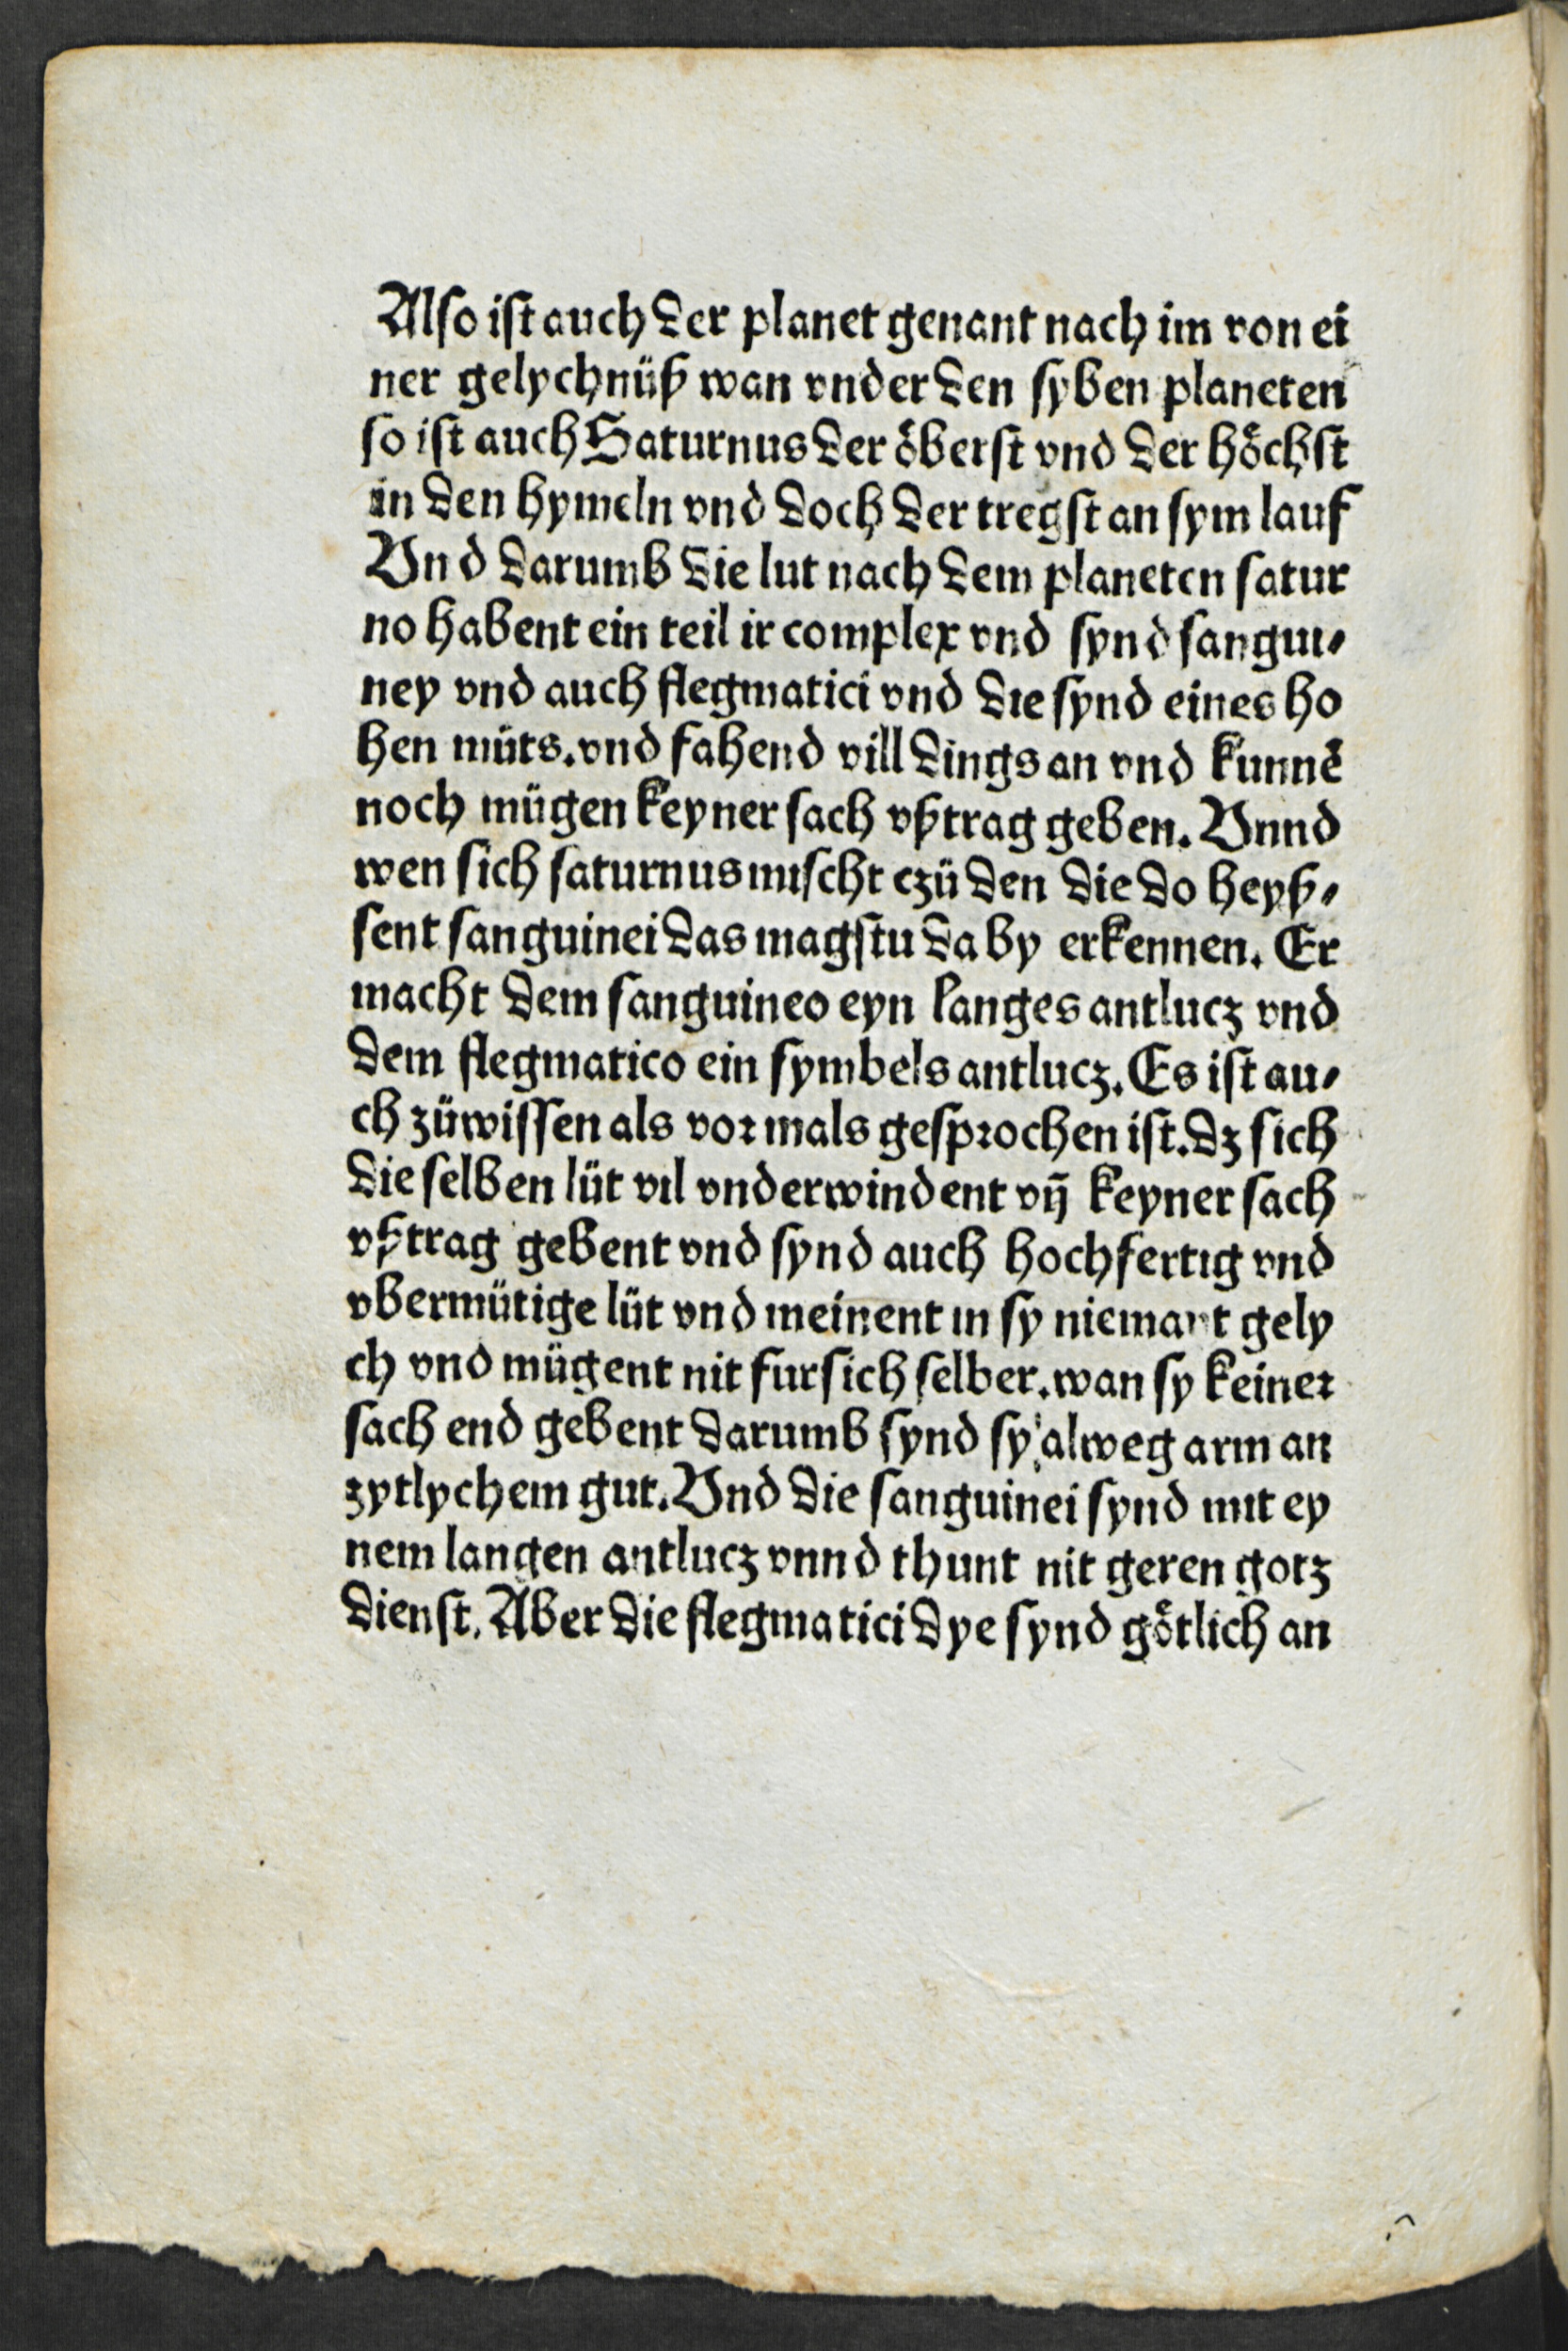 Also ist auch der planet genant nach im von ei
ner gelychnüß wan vnder den syben planeten
so ist auch Saturnus der öberst vnd der höchst
in den hymeln vnd doch der tregst an sym lauf
Vnd darumb die lut nach dem planeten satur
no habent ein teil ir complex vnd synd sangui⸗
ney vnd auch flegmatici vnd die synd eines ho
hen müts. vnd fahend vill dings an vnd kunnē
noch mügen keyner sach vßtrag geben. Vnnd
wen sich saturnus mischt czü den die do heyß⸗
sent sanguinei das magstu da by erkennen. Er
macht dem sanguineo eyn langes antlucz vnd
dem flegmatico ein symbels antlucz. Es ist au⸗
ch züwissen als vormals gesprochen ist. dz sich
die selben lüt vil vnderwindent vñ keyner sach
vßtrag gebent vnd synd auch hochfertig vnd
vbermütige lüt vnd meinent in sy niemant gely
ch vnd mügent nit fur sich selber. wan sy keiner
sach end gebent darumb synd sy alweg arm an
zytlychem gut. Vnd die sanguinei synd mit ey
nem langen antlucz vnnd thunt nit geren gotz
dienst. Aber die flegmatici dye synd götlich an